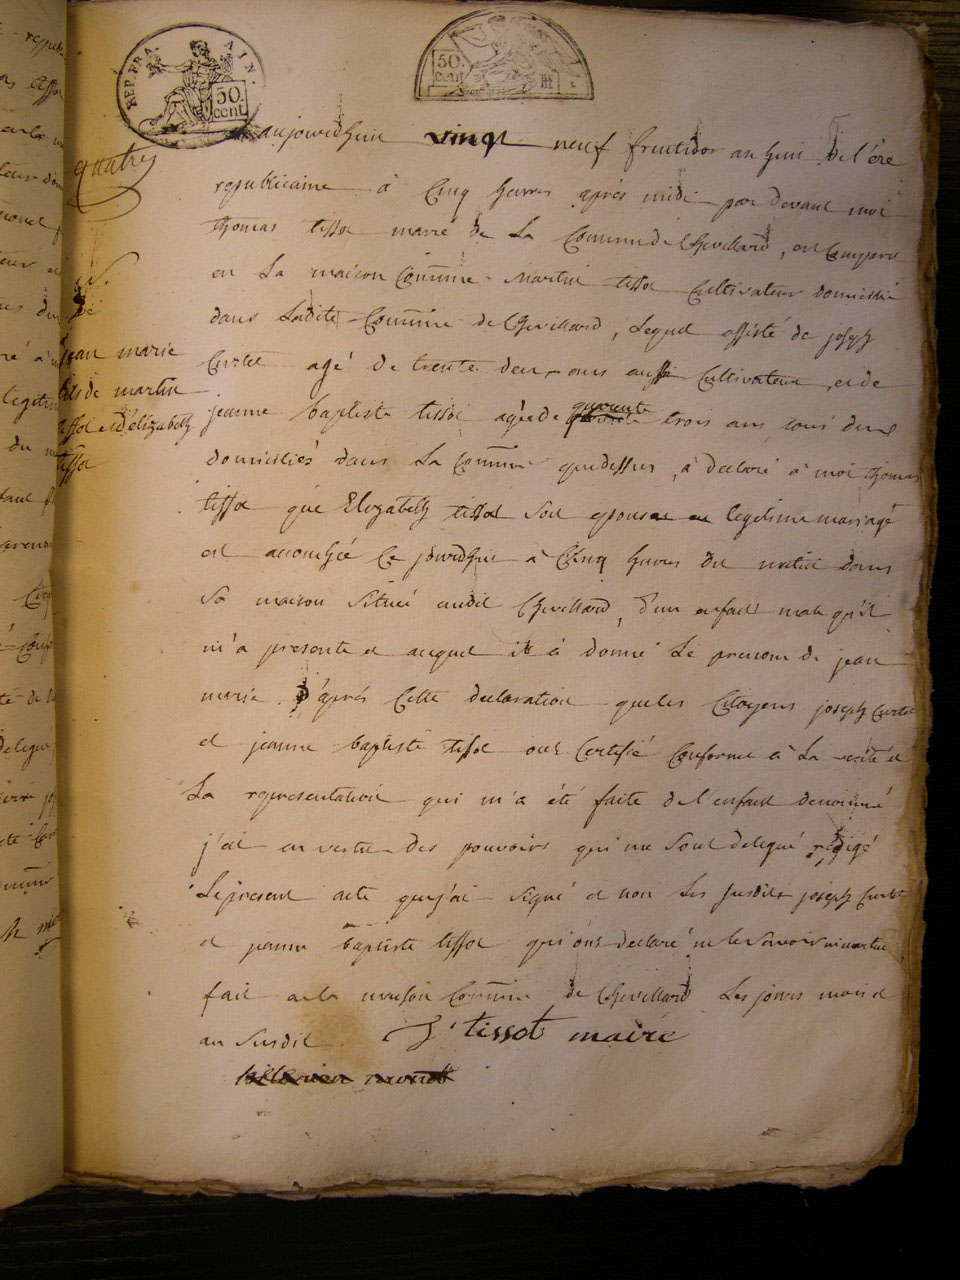 REP. FRA. AIN.
50. cent
50. cent
quatre
N.
de
jean marie
fils de martin
tissot et d'elizabeth
tissot
aujourdhui vingt neuf fructidor an huit de l'ère
republicaine à Cinq heures après midi par devant moi
thomas tissot maire de La Commune de Chevillard, est Comparu
en La maison Commune martin tissot Cultivateur domicilié
dans Ladite Commune de Chevillard, Lequel assisté de joseph
Curtet agé de trente deux ans aussi Cultivateur, et de
jeanne baptiste tissot agée de quarante trois ans, tous deux
domiciliés dans La Commune que dessus, à declaré à moi thomas
tissot que Elizabeth tissot son epouse en legitime mariage
est accouchée Ce jourdhui à Cinq heures du matin dans
sa maison Située audit Chevillard, d'un enfant male qu'il
m'a presenté et auquel il à donné Le prenom de jean
marie. D'après Cette declaration que les Citoyens joseph Curtet
et jeanne baptiste tissot ont Certifié Conforme à La verité et
La representation qui m'a été faite de l'enfant denommé
j'ai en vertu des pouvoirs qui me Sont delegué redigé
Le present acte que j'ai signé et non Les susdits joseph Curtet
et jeanne baptiste tissot qui ont declaré ne le savoir ni martin
fait a la maison Commune de Chevillard Les jours mois et
an susdit. T. tissot maire